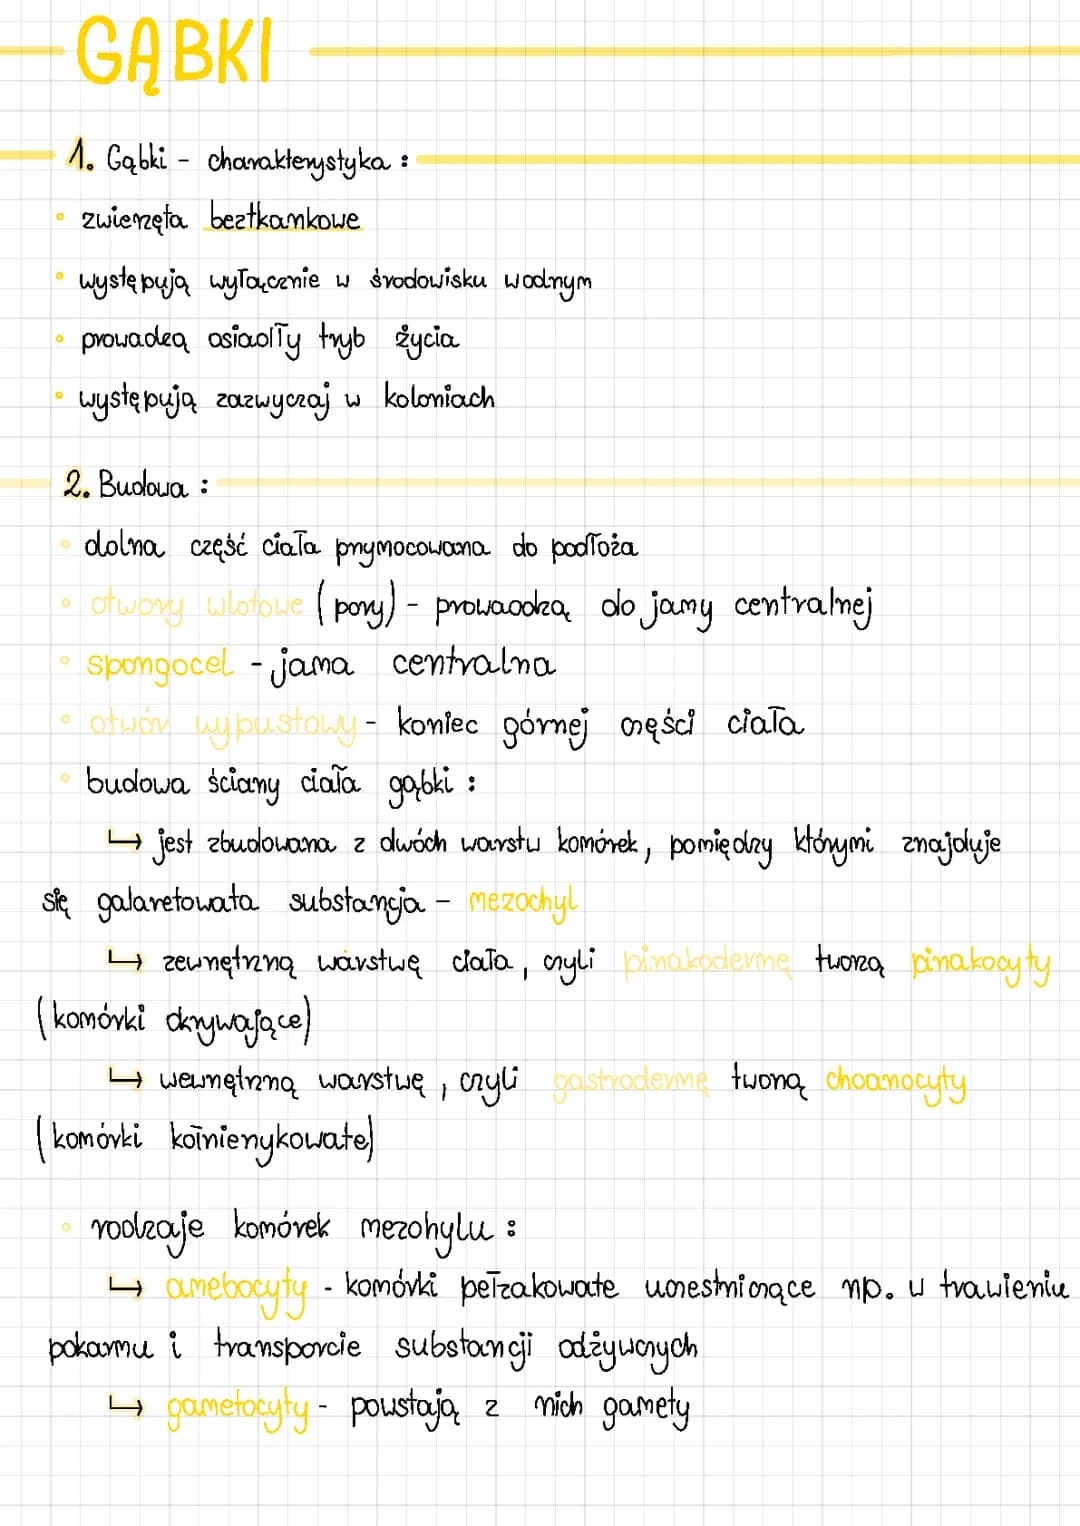 GĄBKI
1. Gąbki - charakterystyka :
zwierzęta beztkankowe
występują wyłącznie w środowisku wodnym
prowadzą osiadły tryb życia
występują zazwyczaj w koloniach
2. Budowa :
dolna część ciała przymocowana do podłoża
otwory wlotowe (pory) - prowadzą do jamy centralnej
spongocel - jama centralna
otwór wypustowy - koniec górnej części ciała
budowa ściany ciała gąbki :
↳ jest zbudowana z dwóch warstw komórek, pomiędzy którymi znajduje
się galaretowata substancja - mezochyl
↳ zewnętrzną warstwę ciała, czyli pinakodermę tworzą pinakocyty
(komórki okrywające)
↳ wewnętrzną warstwę, czyli gastrodermę tworzą choanocyty
(komórki kołnierzykowate)
rodzaje komórek mezohylu :
↳ amebocyty - komórki pełzakowate uczestniczące np. w trawieniu
pokarmu i transporcie substancji odżywczych
↳ gametocyty - powstają z nich gamety